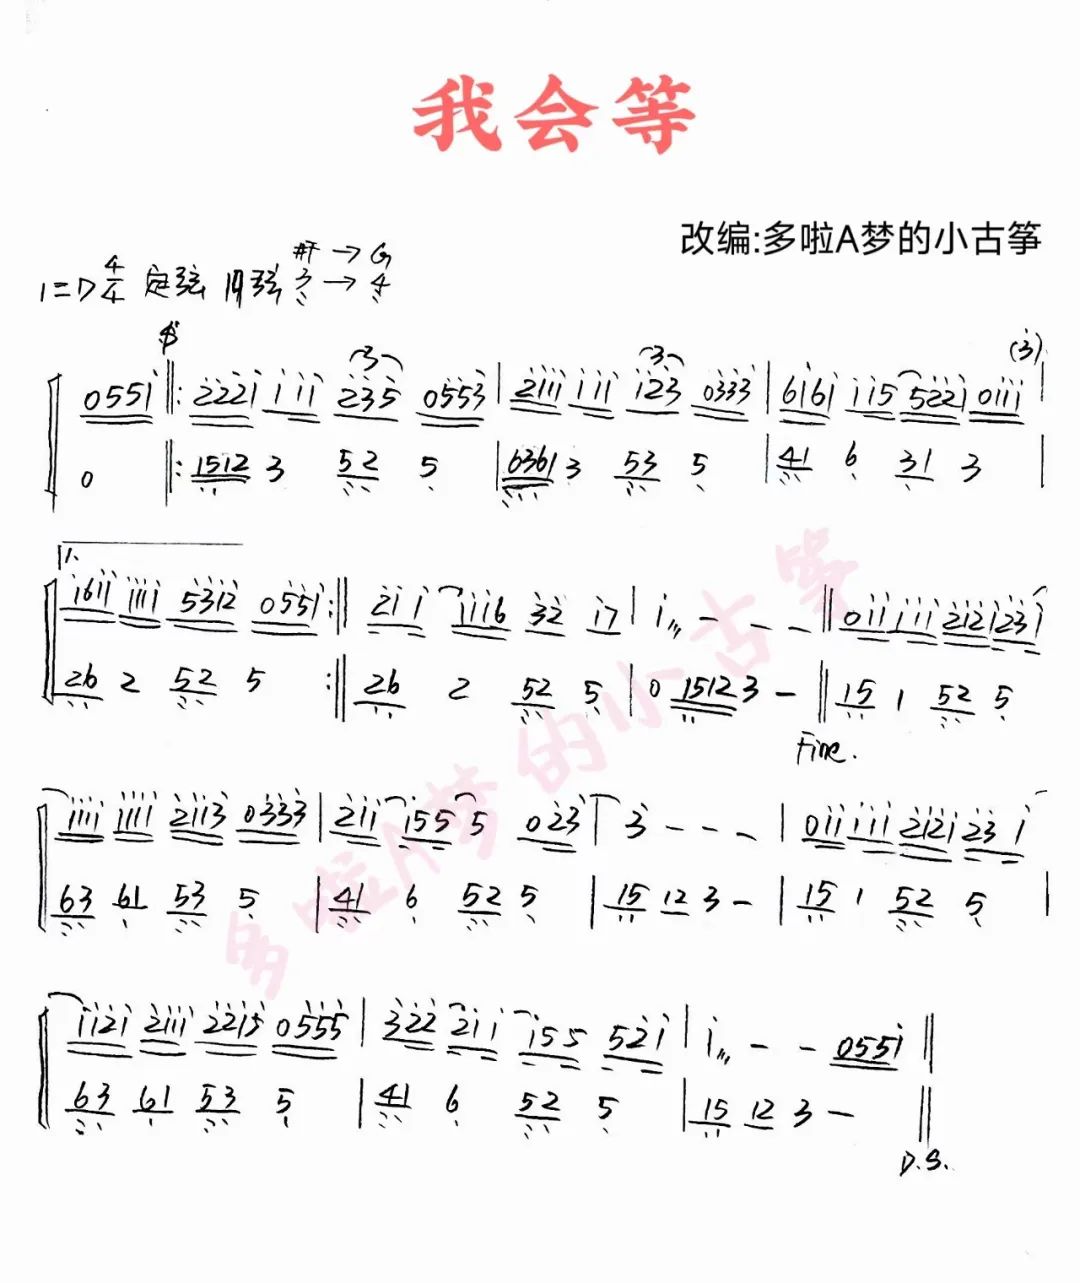 我会等
改编:多啦A梦的小古筝
#F → G
1=D 4/4 定弦 3 → 4
(3)
3 3
0551 ‖: 2221 111 235 0553 | 2111 111 123 0333 | 6161 115 5221 0111 |
0 ‖: 1512 3 52 5 | 6361 3 53 5 | 41 6 31 3 |
1.
1611 1111 5312 0551 :‖ 211 1116 32 17 | 1 - - - ‖ 011 111 2121 231
26 2 52 5 :‖ 26 2 52 5 | 0 1512 3 - ‖ 15 1 52 5
Fine.
1111 1111 2113 0333 | 211 155 5 023 | 3 - - - | 011 111 2121 23 1
63 61 53 5 | 41 6 52 5 | 15 12 3 - | 15 1 52 5 |
1121 2111 2215 0555 | 322 211 155 521 | 1 - - 0551 ‖
63 61 53 5 | 41 6 52 5 | 15 12 3 - ‖
D.S.
多啦A梦的小古筝